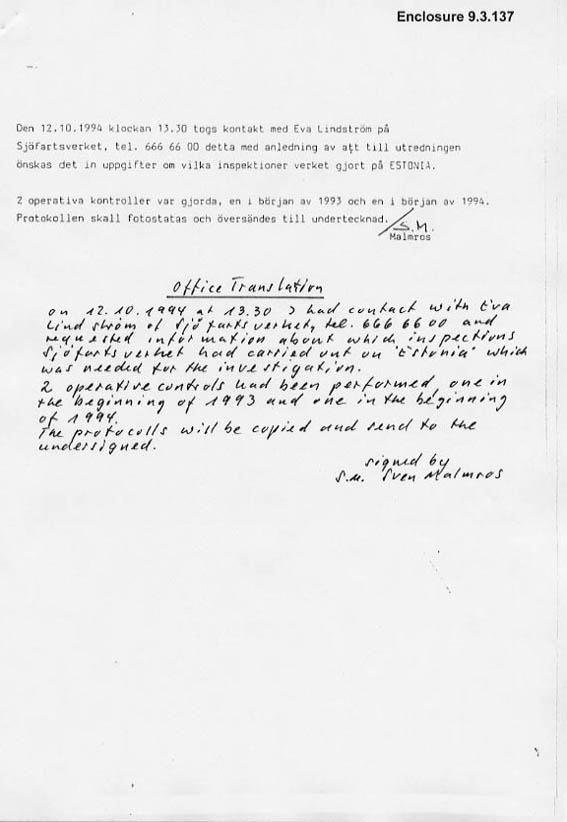 Enclosure 9.3.137
Den 12.10.1994 klockan 13.30 togs kontakt med Eva Lindström på
Sjöfartsverket, tel. 666 66 00 detta med anledning av att till utredningen
önskas det in uppgifter om vilka inspektioner verket gjort på ESTONIA.
2 operativa kontroller var gjorda, en i början av 1993 och en i början av 1994.
Protokollen skall fotostatas och översändes till undertecknad.
S.M.
Malmros
Office Translation
on 12.10.1994 at 13.30 I had contact with Eva
Lindström of Sjöfartsverket, tel. 666 66 00 and
requested information about which inspections
Sjöfartsverket had carried out on "Estonia" which
was needed for the investigation.
2 operative controls had been performed, one in
the beginning of 1993 and one in the beginning
of 1994.
The protocolls will be copied and send to the
undersigned.
signed by
S.M. Sven Malmros